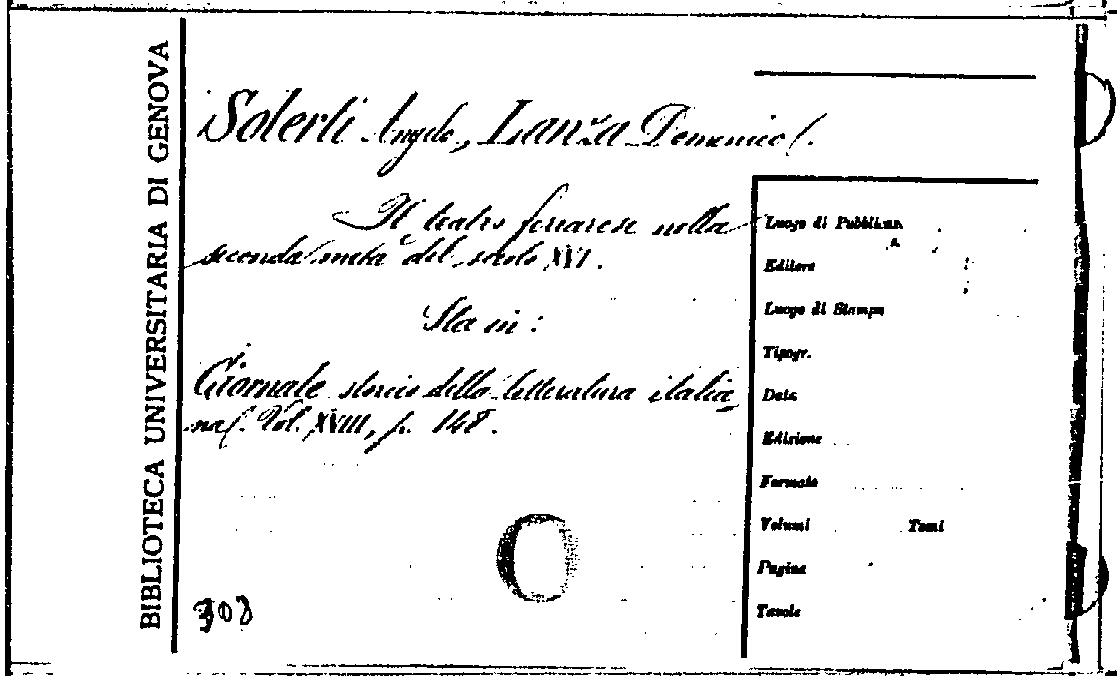 BIBLIOTECA UNIVERSITARIA DI GENOVA
Solerti Angelo, Lanza Domenico (.
Il teatro ferrarese nella
seconda metà del secolo XVI.
Sta in:
Giornale storico della letteratura italia
na (. Vol. XVIII, p. 148.
303
Luogo di Pubblicaz.
Editore
Luogo di Stampa
Tipogr.
Data
Edizione
Formato
Volumi Tomi
Pagine
Tavole